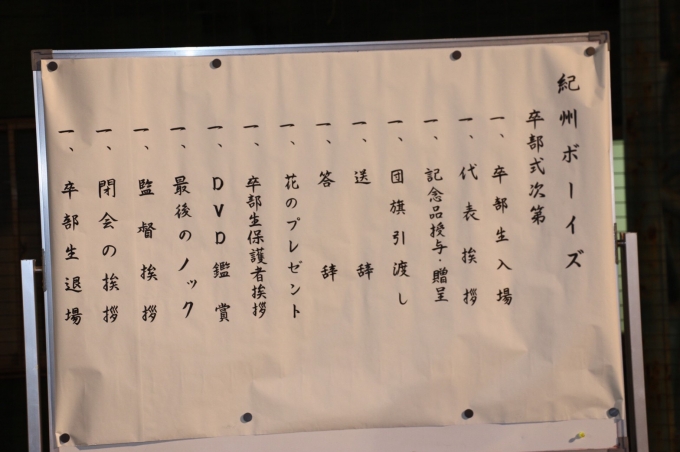 紀州ボーイズ
卒部式次第
一、卒部生入場
一、代表挨拶
一、記念品授与・贈呈
一、団旗引渡し
一、送辞
一、答辞
一、花のプレゼント
一、卒部生保護者挨拶
一、DVD鑑賞
一、最後のノック
一、監督挨拶
一、閉会の挨拶
一、卒部生退場